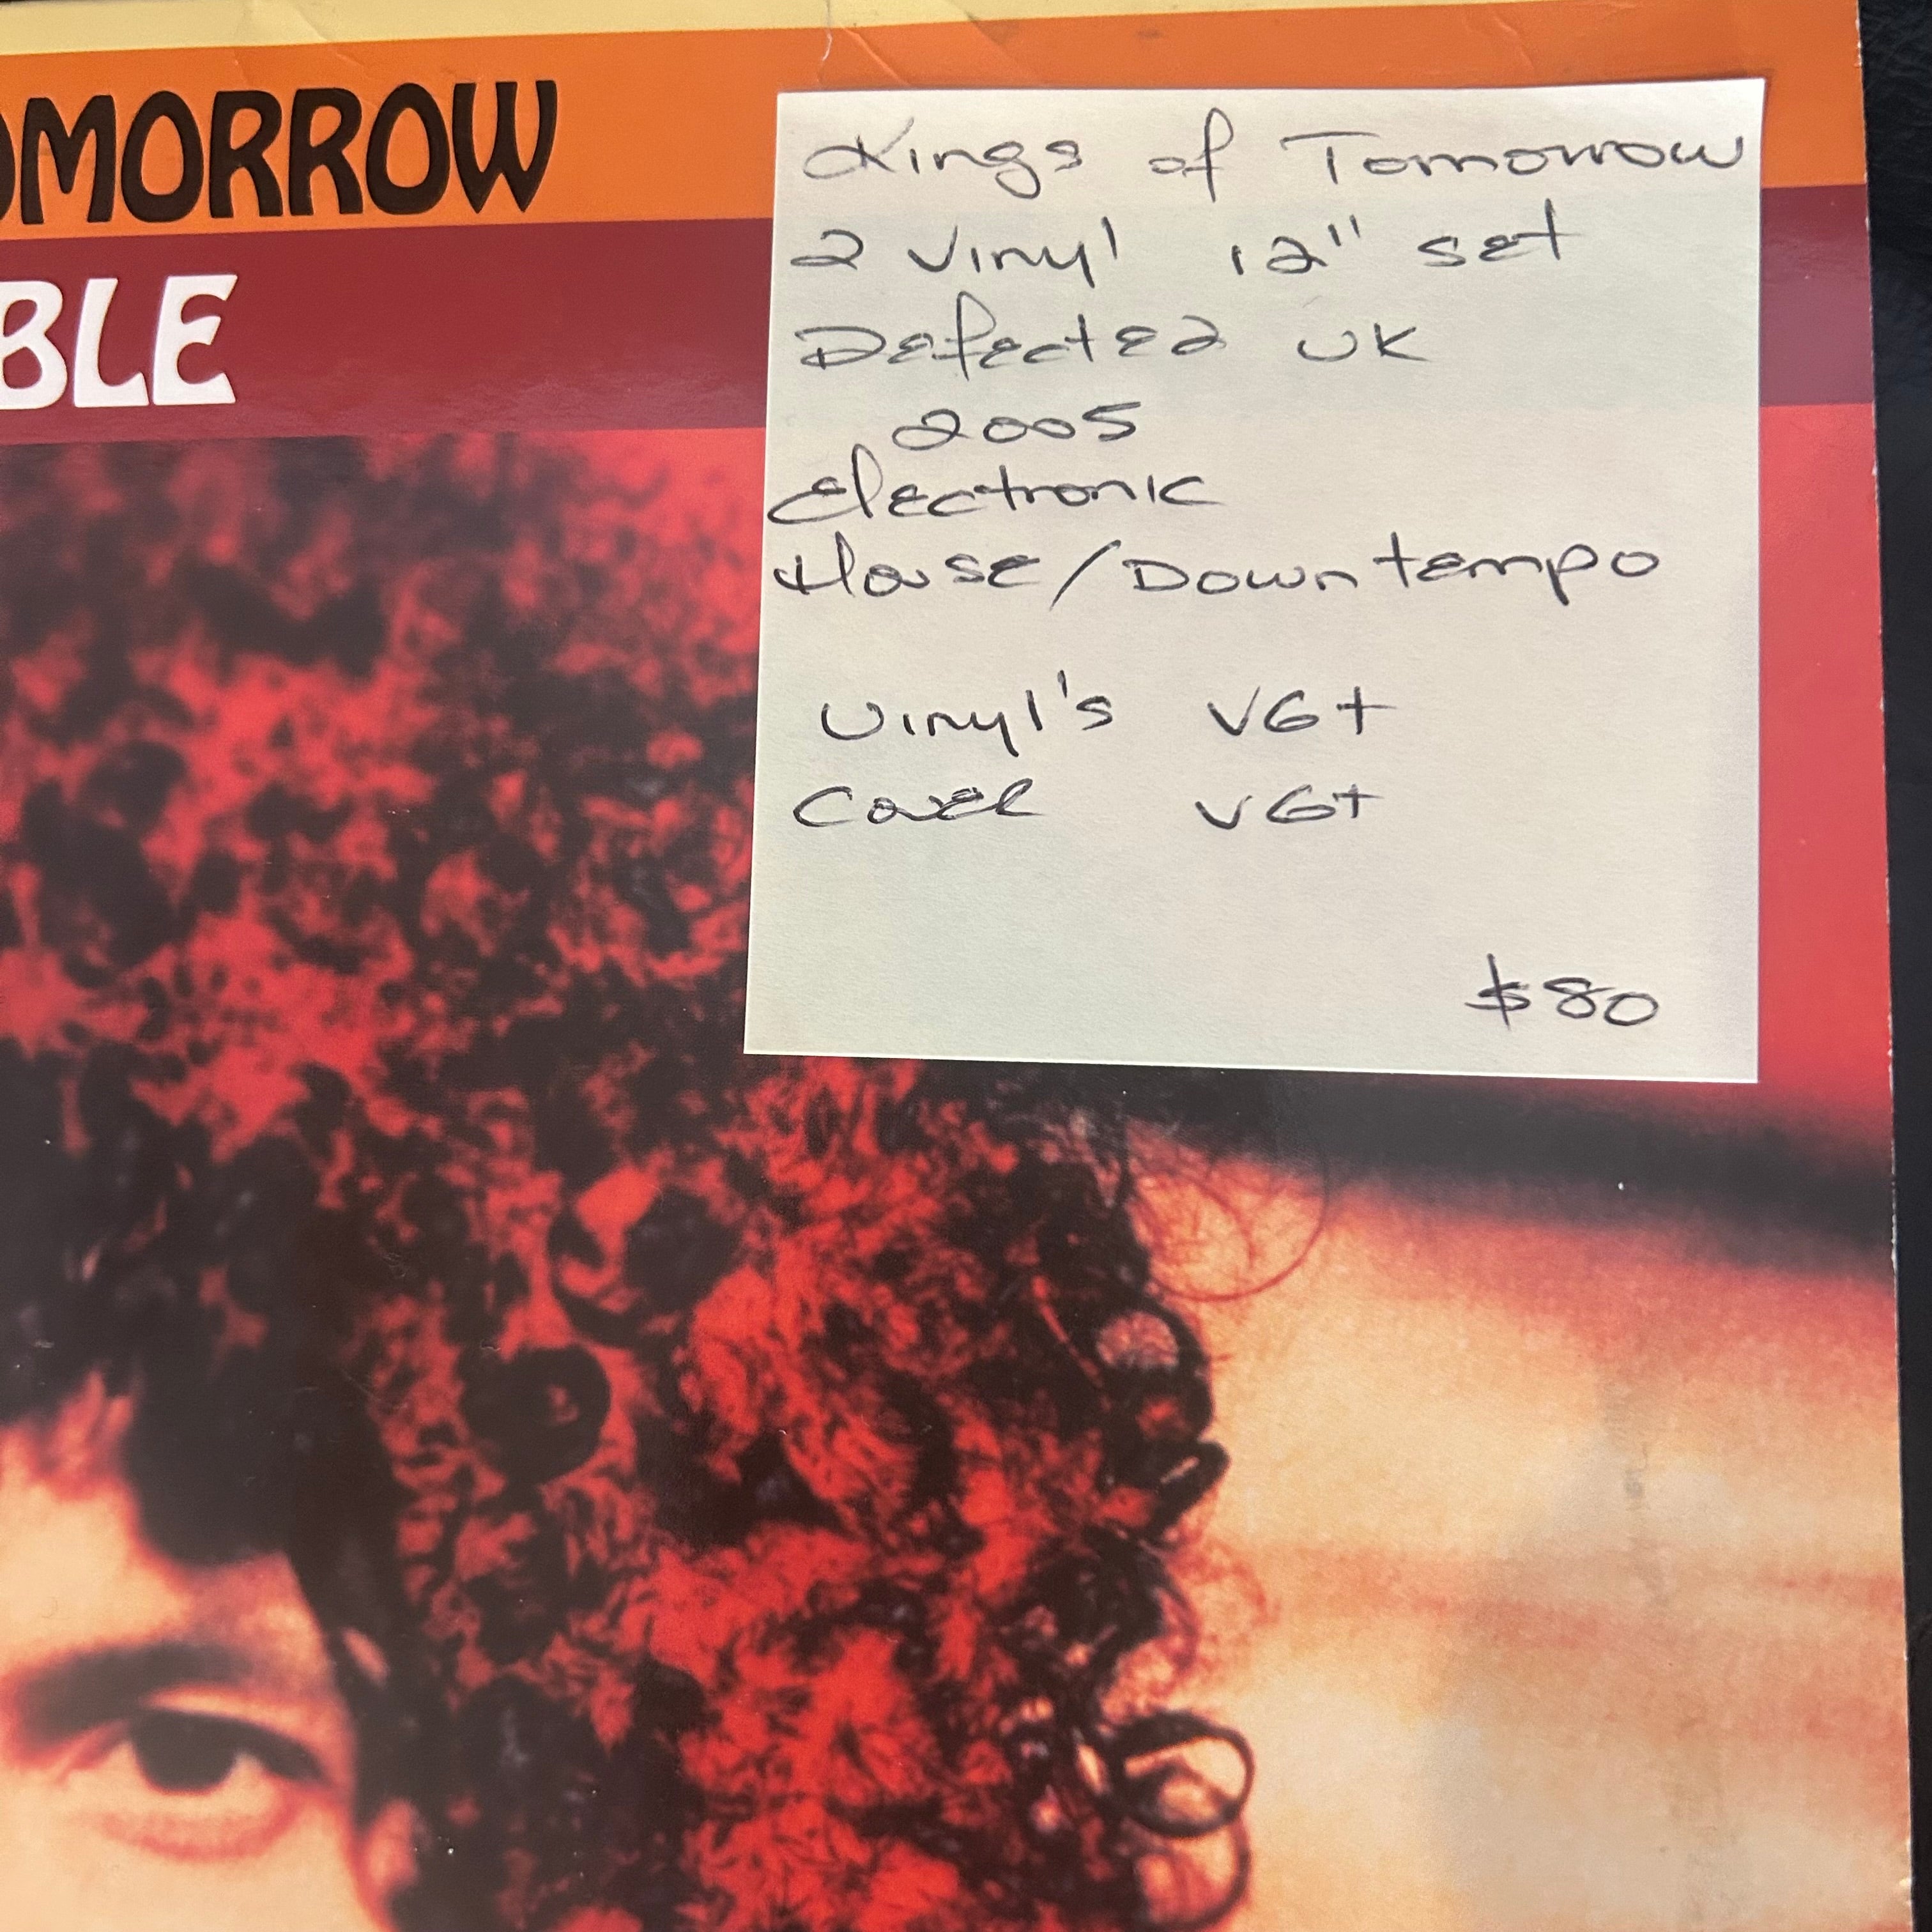 OMORROW
BLE
Kings of Tomorrow
2 Vinyl 12" set
Defected UK
2005
Electronic
House/Downtempo
Vinyl's VG+
Cover VG+
$80